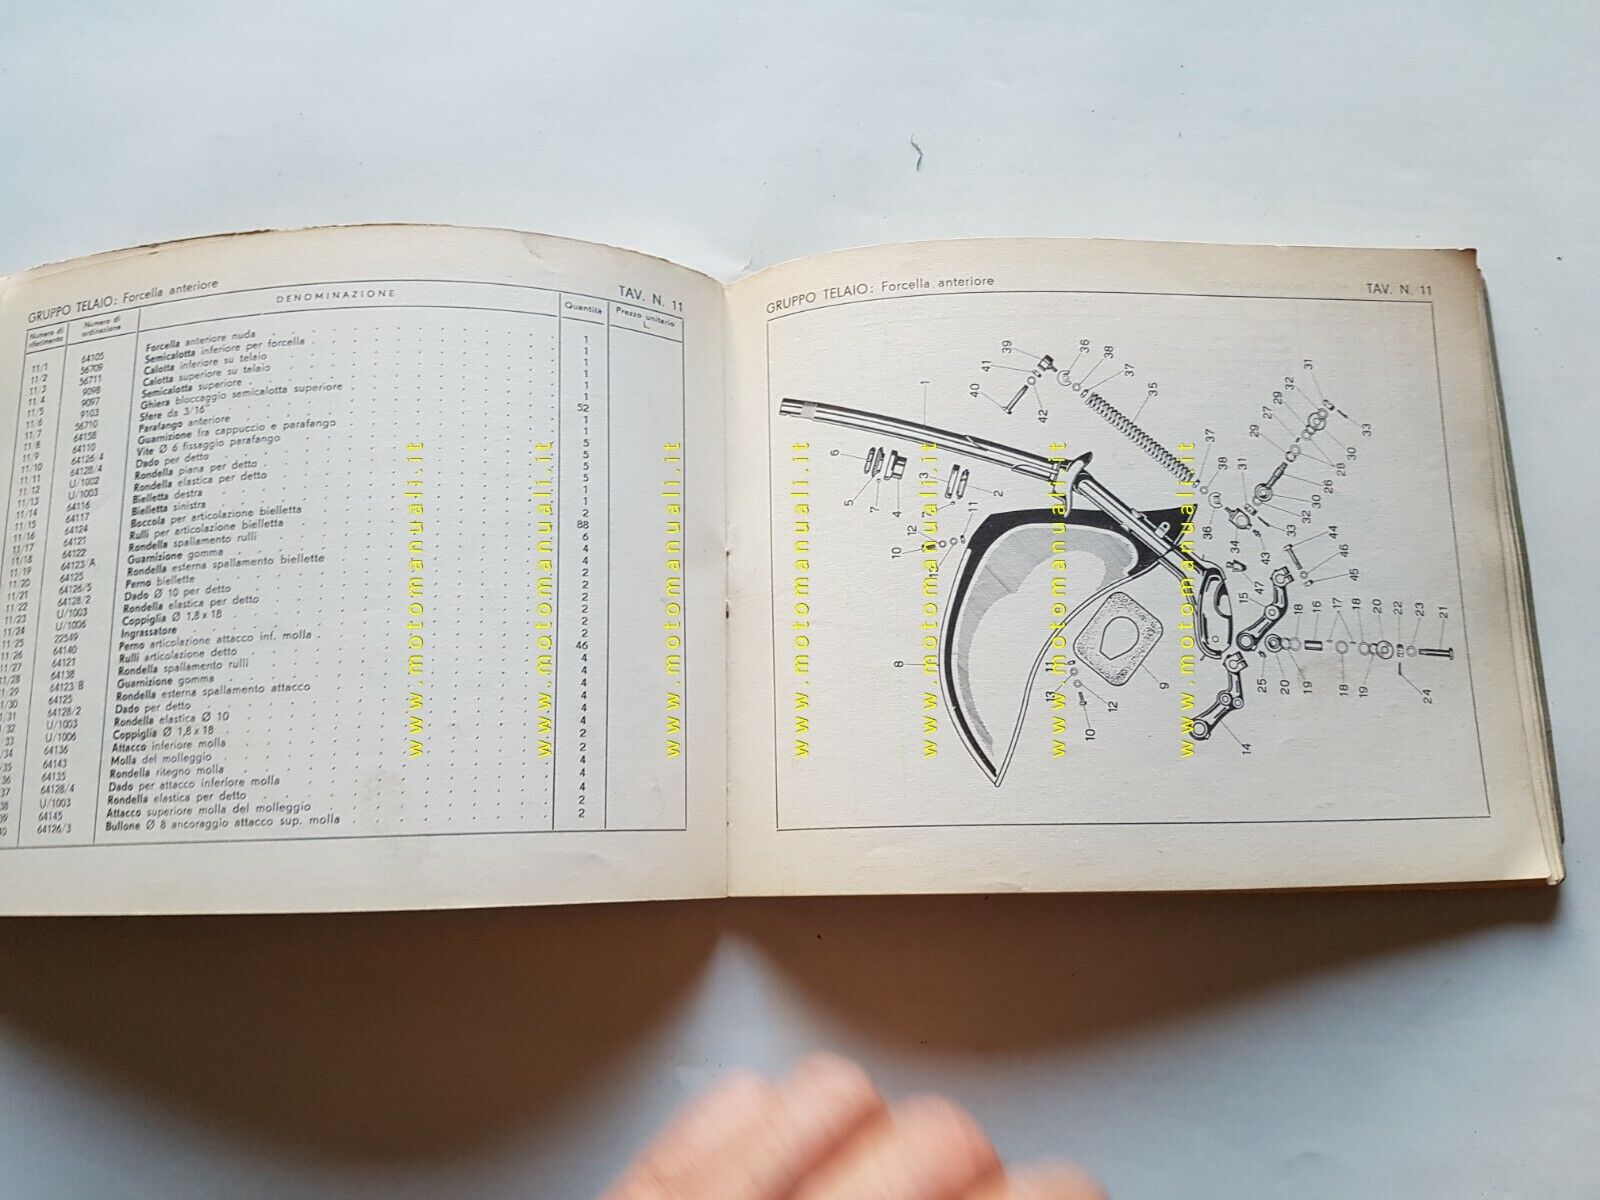 GRUPPO TELAIO: Forcella anteriore TAV. N. 11
Numero di riferimento Numero di ordinazione DENOMINAZIONE Quantità Prezzo unitario L.
11/1 64105 Forcella anteriore nuda 1
11/2 56709 Semicalotta inferiore per forcella 1
11/3 56711 Calotta inferiore su telaio 1
11/4 9098 Calotta superiore su telaio 1
11/5 9097 Semicalotta superiore 1
11/6 9103 Ghiera bloccaggio semicalotta superiore 1
11/7 56710 Sfere da 3/16" 52
11/8 64158 Parafango anteriore 1
11/9 64110 Guarnizione fra cappuccio e parafango 1
11/10 64126/4 Vite Ø 6 fissaggio parafango 5
11/11 64128/4 Dado per detto 5
11/12 U/1002 Rondella piana per detto 5
11/13 U/1003 Rondella elastica per detto 5
11/14 64116 Bielletta destra 1
11/15 64117 Bielletta sinistra 1
11/16 64124 Boccola per articolazione bielletta 2
11/17 64121 Rulli per articolazione bielletta 88
11/18 64122 Rondella spallamento rulli 6
11/19 64123/A Guarnizione gomma 4
11/20 64125 Rondella esterna spallamento biellette 4
11/21 64128/2 Perno biellette 2
11/22 U/1003 Dado Ø 10 per detto 2
11/23 U/1006 Rondella elastica per detto 2
11/24 22549 Coppiglia Ø 1,8 x 18 2
11/25 64140 Ingrassatore 2
11/26 64121 Perno articolazione attacco inf. molla 2
11/27 64138 Rulli articolazione detto 46
11/28 64123/B Rondella spallamento rulli 4
11/29 64125 Guarnizione gomma 4
11/30 64128/2 Rondella esterna spallamento attacco 4
1/31 U/1003 Dado per detto 4
/32 U/1006 Rondella elastica Ø 10 4
33 64136 Coppiglia Ø 1,8 x 18 4
/34 64143 Attacco inferiore molla 2
/35 64135 Molla del molleggio 2
36 64128/4 Rondella ritegno molla 4
37 U/1003 Dado per attacco inferiore molla 4
38 64145 Rondella elastica per detto 4
39 64126/3 Attacco superiore molla del molleggio 2
40 Bullone Ø 8 ancoraggio attacco sup. molla 2
www.motomanuali.it
www.motomanuali.it
www.motomanuali.it
GRUPPO TELAIO: Forcella anteriore TAV. N. 11
39
36
41
38
37
40
42
1
35
32
31
29
27
33
6
37
29
30
38
28
31
5
7
4
3
2
26
30
32
36
33
11
12
10
34
43
44
46
45
47
15
18
16
17
18
20
22
23
21
8
11
13
12
10
9
25
20
19
18
19
24
14
www.motomanuali.it
www.motomanuali.it
www.motomanuali.it
www.motomanuali.it